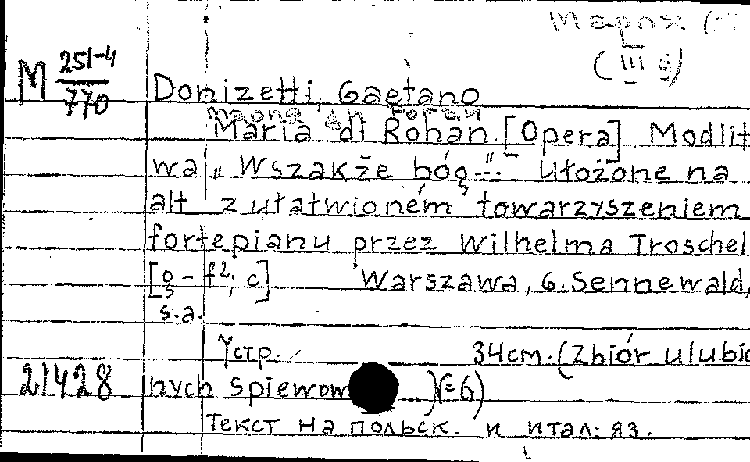 (III ş)
M 251-4
770
Donizetti, Gaetano
Maria di Rohan. [Opera] Modlit
wa „ Wszakże bóg..." ułożone na
alt z ułatwioném towarzyszeniem
fortepianu przez Wilhelma Troschel
Warszawa, G. Sennewald,
s.a.
7стр. 34cm. (Zbiór ulubio
21428 nych Spiewow ... )(=6)
Текст на польск. и итал. яз.